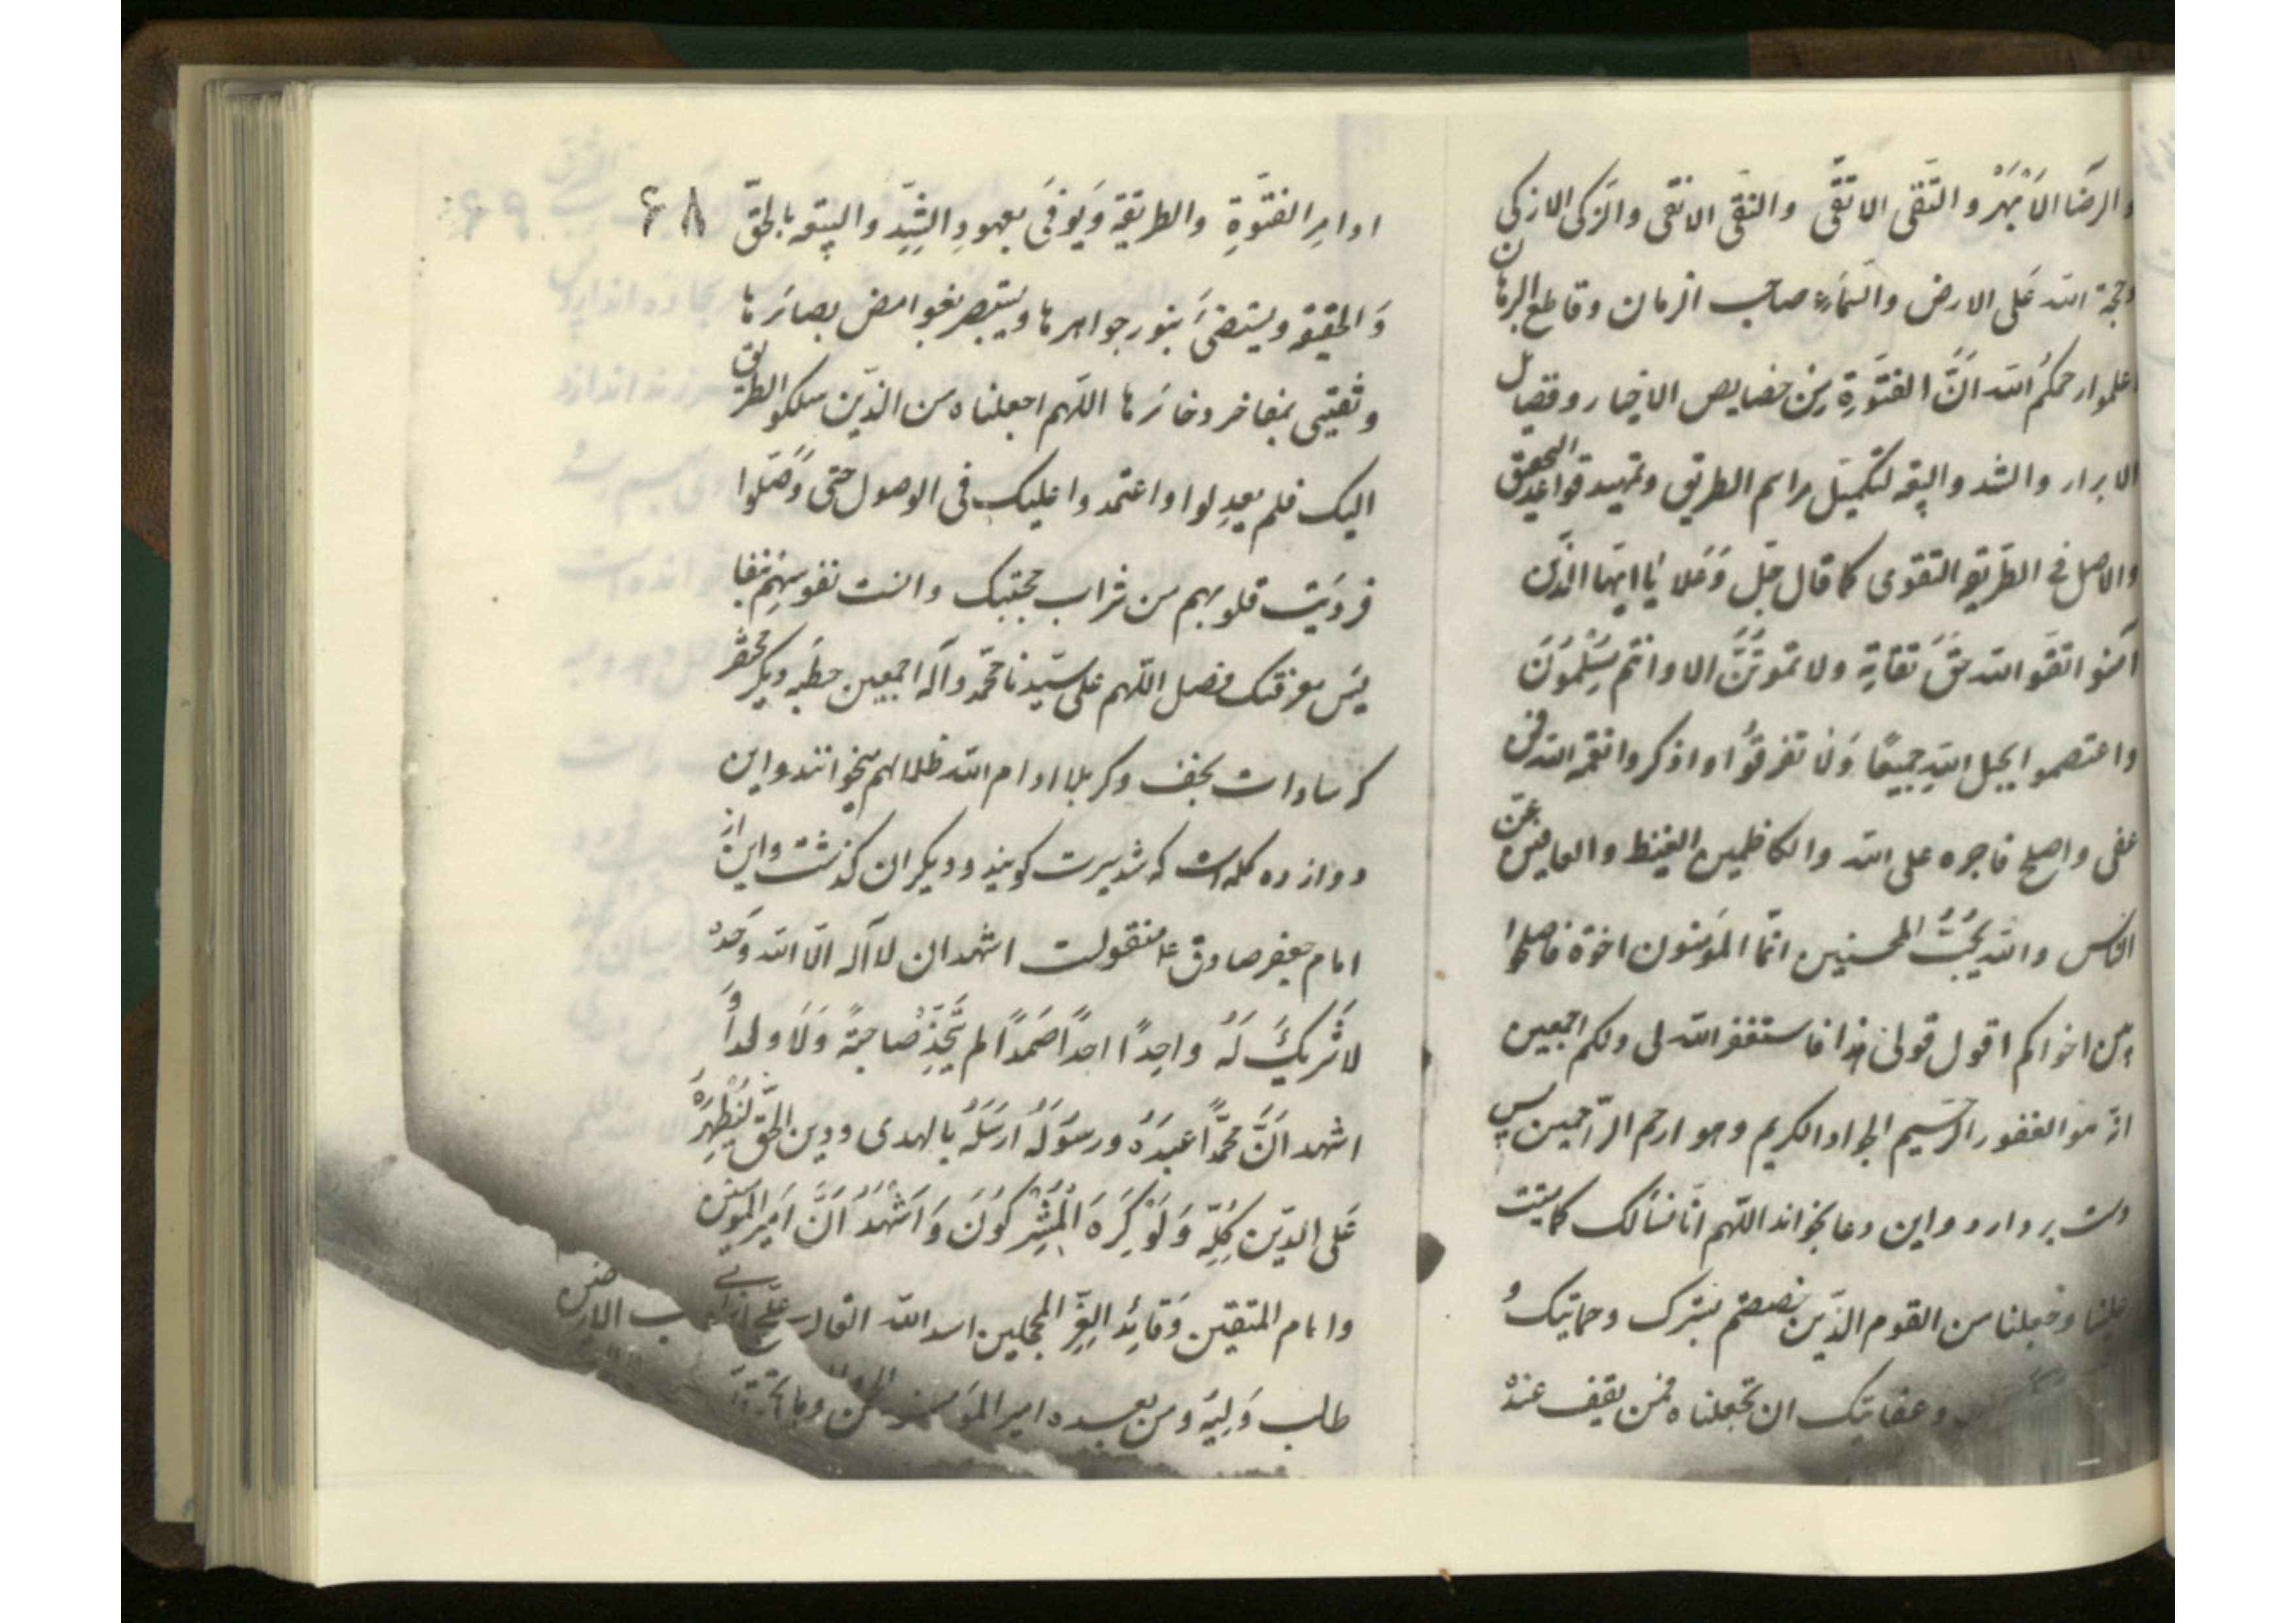 والرضا الاَمْهَرْ و التقى الاتقى والنقى الانقى والزكى الازكى
وحجة الله عَلى الارض والسّمآء صاحب الزمان وقاطع البرهان
اعلموا رحمكم الله انَّ الفتوّةِ من خصايص الاخيار و فضايل
الابرار والشد والبيعه لتكميل مراسم الطريق وتمهيد قواعد التحقيق
والاصل فى الطريقه التقوى كما قال جلّ وَعَلا يا ايها الذين
آمنوا اتقوا الله حقَّ تقاتِه ولا تموتنَّ الا وانتم مسْلِمُونَ
واعتصموا بحبل اللهِ جميعًا وَلا تفرقوُا واذكروا نعمة الله فمن
عفى واصلح فاجره على الله والكاظمين الغيظ والعافين عن
الناس والله يُحبُّ المحسنين انّما المؤمنون اخوة فاصلحوا
بين اخوانكم اقول قولى هذا فاستغفر الله لى ولكم اجمعين
انّه هو الغفور الرّحيم الجواد الكريم وهو ارحم الرّاحمين پس
دست بردارد و اين دعا بخواند اللّهم انّا نسألك كما
علينا وجعلنا من القوم الذين بسرّك وحمايتك و
وعنايتك ان تجعلناه ممن يقف عند
اوامِرِ الفتوّةِ والطريقة وَيُوفىَ بعهودِ الشّدِّ والبيعه بالحقّ ۶۸
وَالحقيقه ويستضىَ بنور جواهرها ويستبصر بغوامض بصائرها
و بمفاخر ذخائرها اللّهم اجعلناه من الذّين سلكو الطريق
اليك فلم يعدِلوا واعتمدوا عليك فى الوصول حتى وَصَلوا
فرويَت قلوبهم من شراب محبتك وانست نفوسهم
معرفتك فصل اللّهم على سيّدنا محمّد وآله اجمعين خطبه ديكر مختصر
كه سادات نجف وكربلا ادام الله ظلالهم ميخوانند و اين
دوازده كلمه است كه شد بيرت كويند و ديكران كذشت و اين از
امام جعفر صادق ع منقولست اشهد ان لا اله الّا الله وَحده
لا شَريكَ لَهُ واحِدًا احدًا صَمَدًا لم يَتَّخِذْ صاحبةً وَلَا ولدًا وَ
اشهد انَّ محمّدًا عبدَهُ ورسوُلَهُ ارسَلَهُ بالهدى ودين الحقّ لِيُظْهِرَهُ
عَلى الدّين كُلِّه وَلَوْ كَرِهَ الْمُشْرِكوُنَ وَاَشْهَدُ اَنَّ اَميرَ المؤمنين
وامام المتقين وَقائِدِ الغِرّ المحجلين اسد الله الغالب علىّ ابن ابى
طالب وَلِيّهُ ومن بعده امير المؤمنين